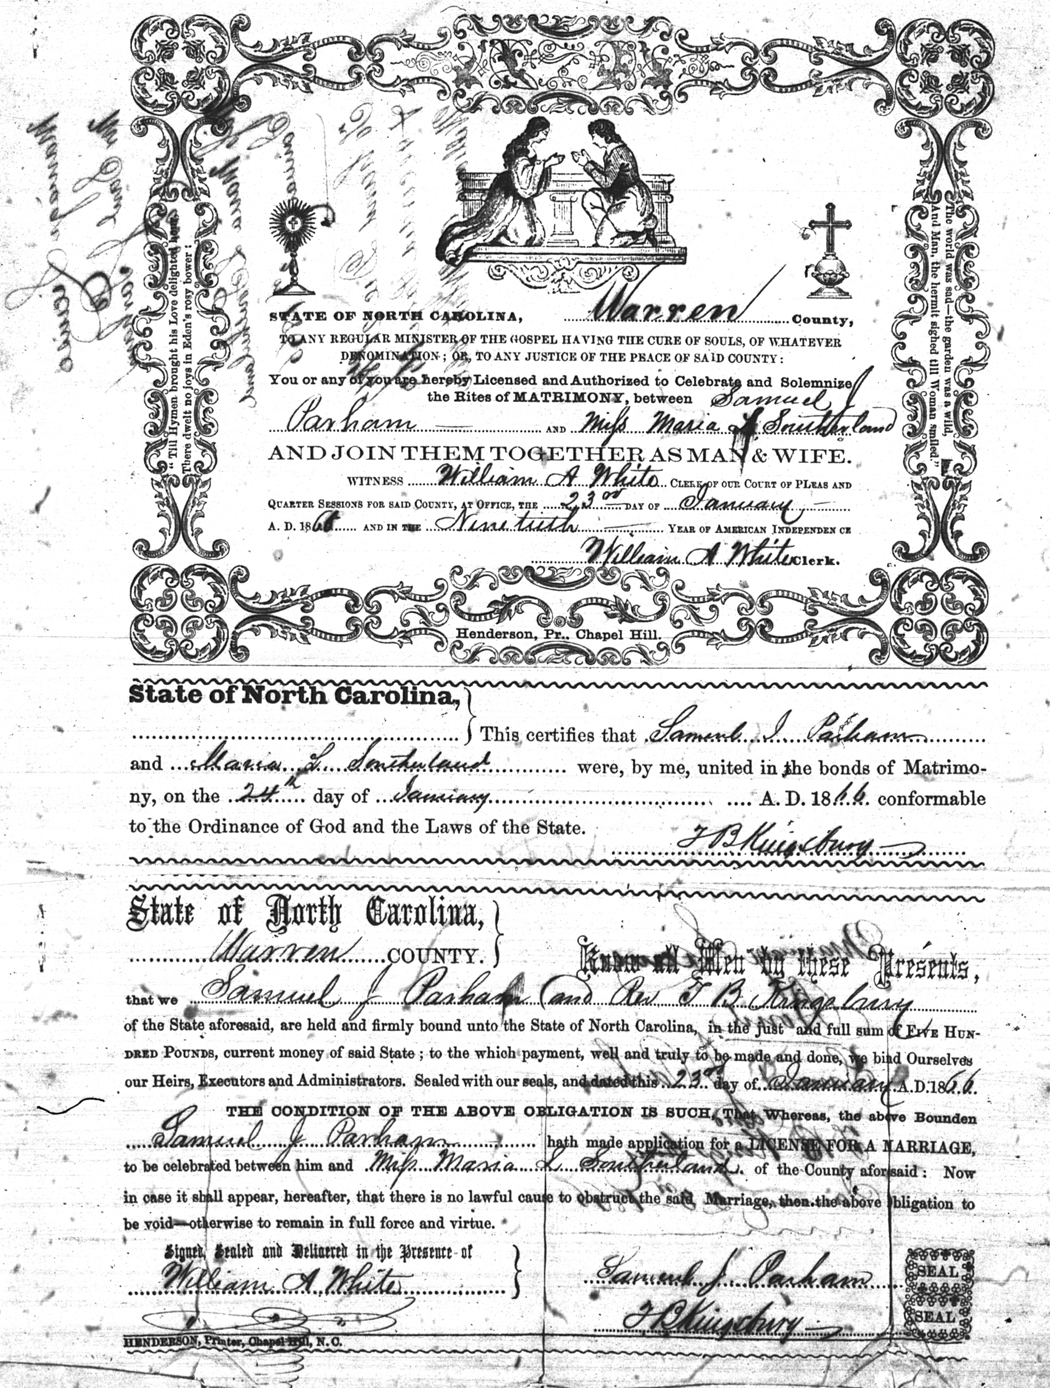 "Till Hymen brought his Love delighted hour,
There dwelt no joys in Eden's rosy bower:
The world was sad—the garden was a wild,
And Man, the hermit sighed till Woman smiled."
STATE OF NORTH CAROLINA, Warren County,
TO ANY REGULAR MINISTER OF THE GOSPEL HAVING THE CURE OF SOULS, OF WHATEVER
DENOMINATION; OR, TO ANY JUSTICE OF THE PEACE OF SAID COUNTY:
You or any of you are hereby Licensed and Authorized to Celebrate and Solemnize
the Rites of MATRIMONY, between Samuel J
Parham AND Miss Maria L Southerland
AND JOIN THEM TOGETHER AS MAN & WIFE.
WITNESS William A White CLERK OF OUR COURT OF PLEAS AND
QUARTER SESSIONS FOR SAID COUNTY, AT OFFICE, THE 23rd DAY OF January
A. D. 1866 AND IN THE Ninetieth YEAR OF AMERICAN INDEPENDENCE
William A White Clerk.
Henderson, Pr., Chapel Hill.
State of North Carolina,
This certifies that Samuel J Parham
and Maria L Southerland were, by me, united in the bonds of Matrimo-
ny, on the 24th day of January A. D. 1866 conformable
to the Ordinance of God and the Laws of the State.
T B Kingsbury
State of North Carolina,
Warren COUNTY.
Know all Men by these Presents,
that we Samuel J Parham and Rev T B Kingsbury
of the State aforesaid, are held and firmly bound unto the State of North Carolina, in the just and full sum of FIVE HUN-
DRED POUNDS, current money of said State; to the which payment, well and truly to be made and done, we bind Ourselves
our Heirs, Executors and Administrators. Sealed with our seals, and dated this 23rd day of January A.D. 1866.
THE CONDITION OF THE ABOVE OBLIGATION IS SUCH, That Whereas, the above Bounden
Samuel J Parham hath made application for a LICENSE FOR A MARRIAGE,
to be celebrated between him and Miss Maria L Southerland of the County aforesaid: Now
in case it shall appear, hereafter, that there is no lawful cause to obstruct the said Marriage, then the above obligation to
be void—otherwise to remain in full force and virtue.
Signed, Sealed and Delivered in the Presence of
William A White
Samuel J Parham SEAL
T B Kingsbury SEAL
HENDERSON, Printer, Chapel Hill, N. C.